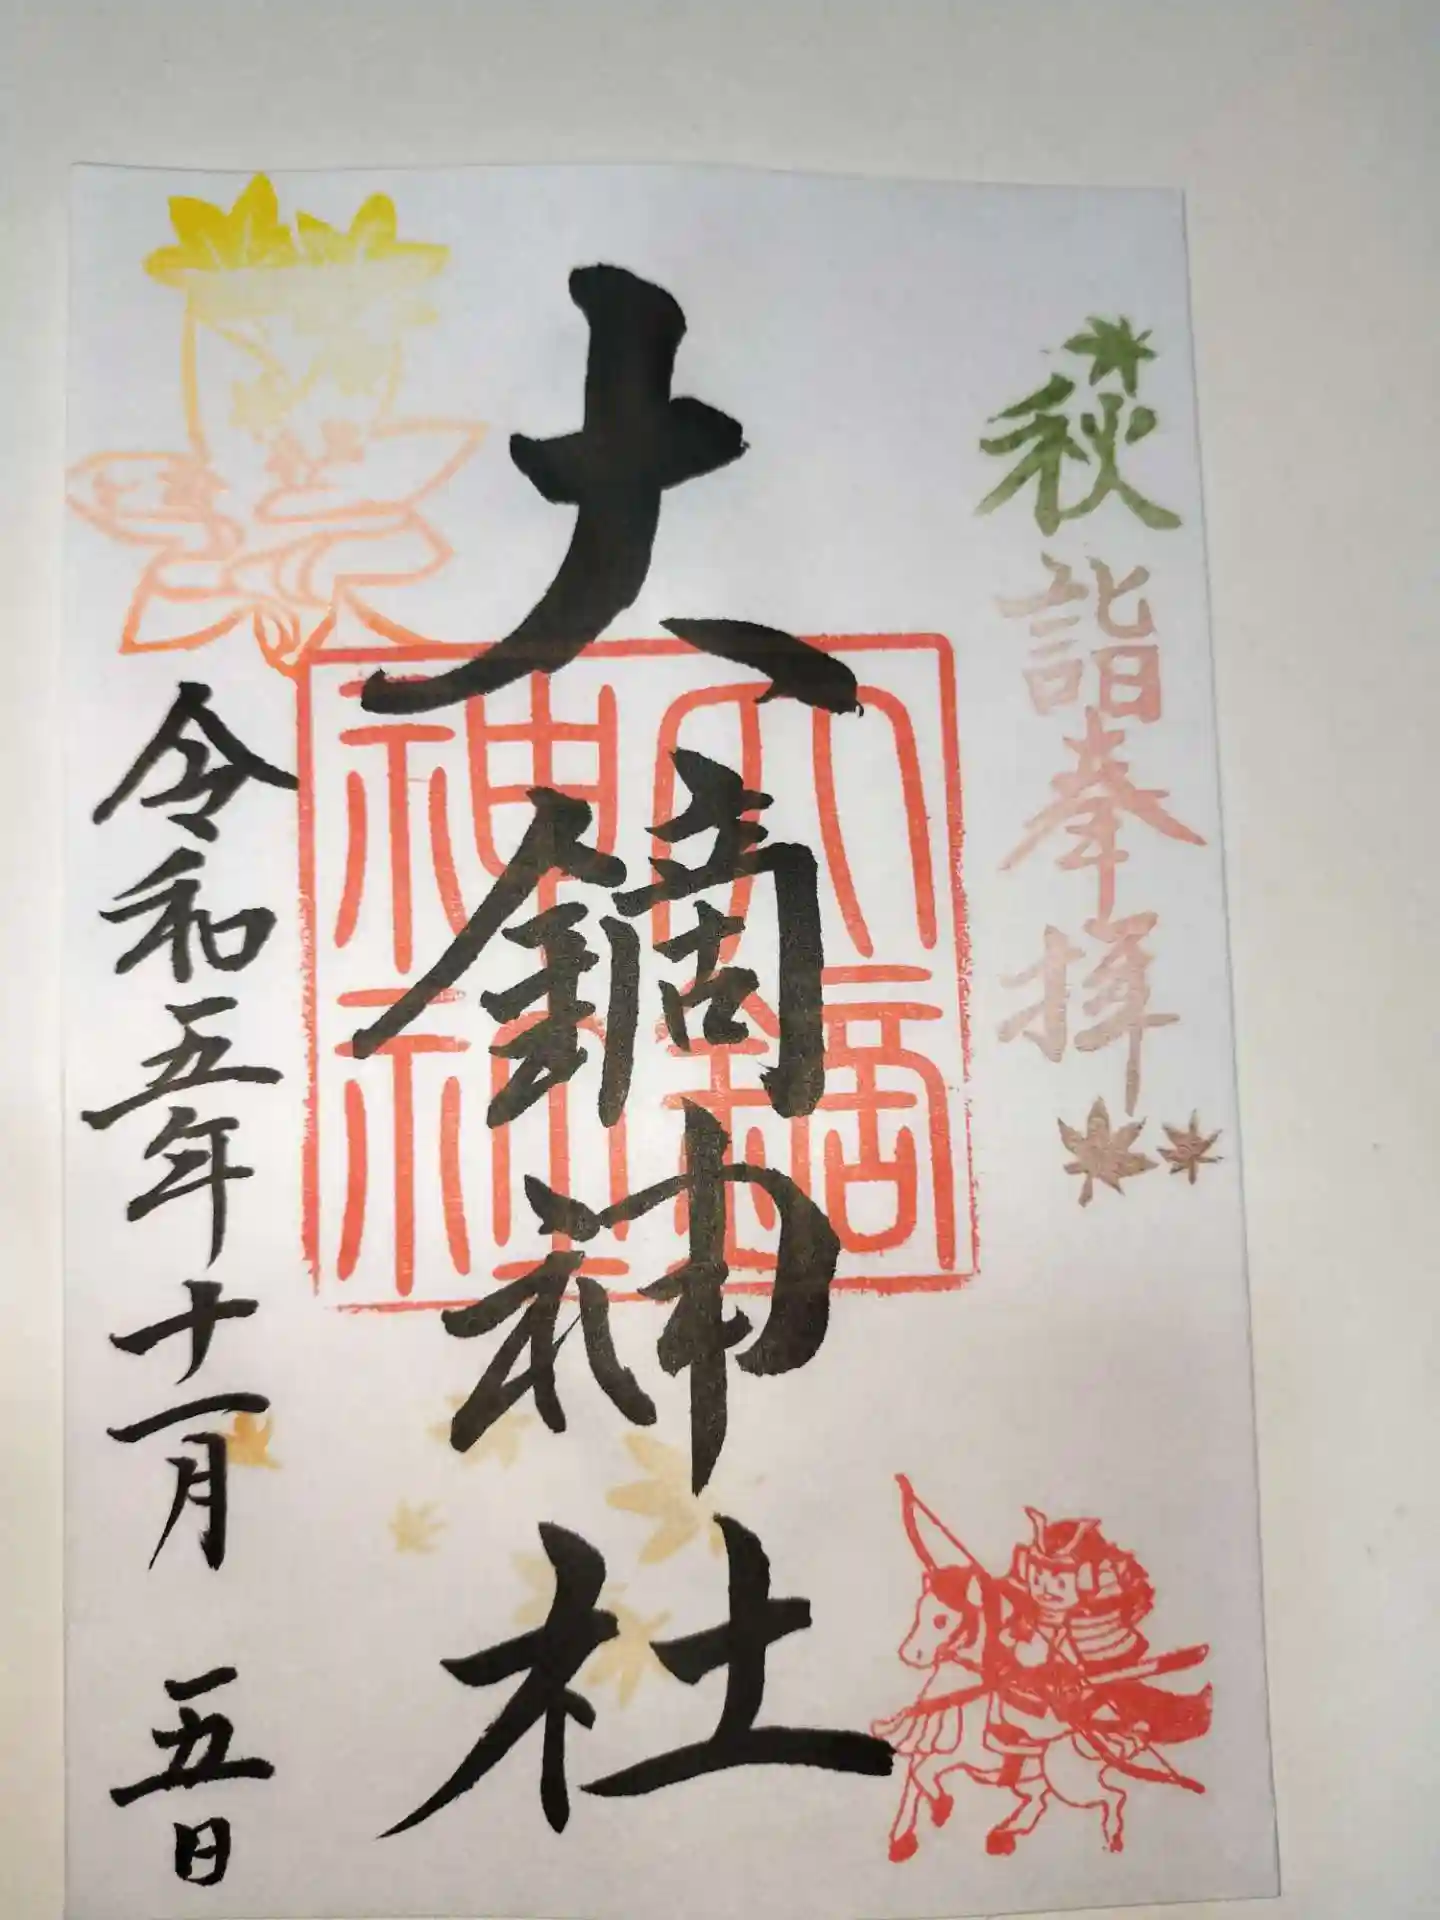 秋詣奉拝
大鏑神社
大鏑
神社
令和五年十一月 五日